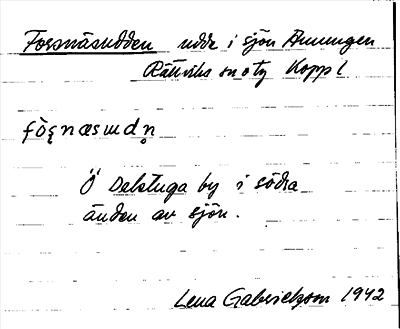 Forsnäsudden udde i sjön Amungen
Rättviks sn o tg Koppl
fò̀ṣnæsɯdn̥
Ö Dalstuga by i södra
änden av sjön.
Lena Gabrielsson 1942